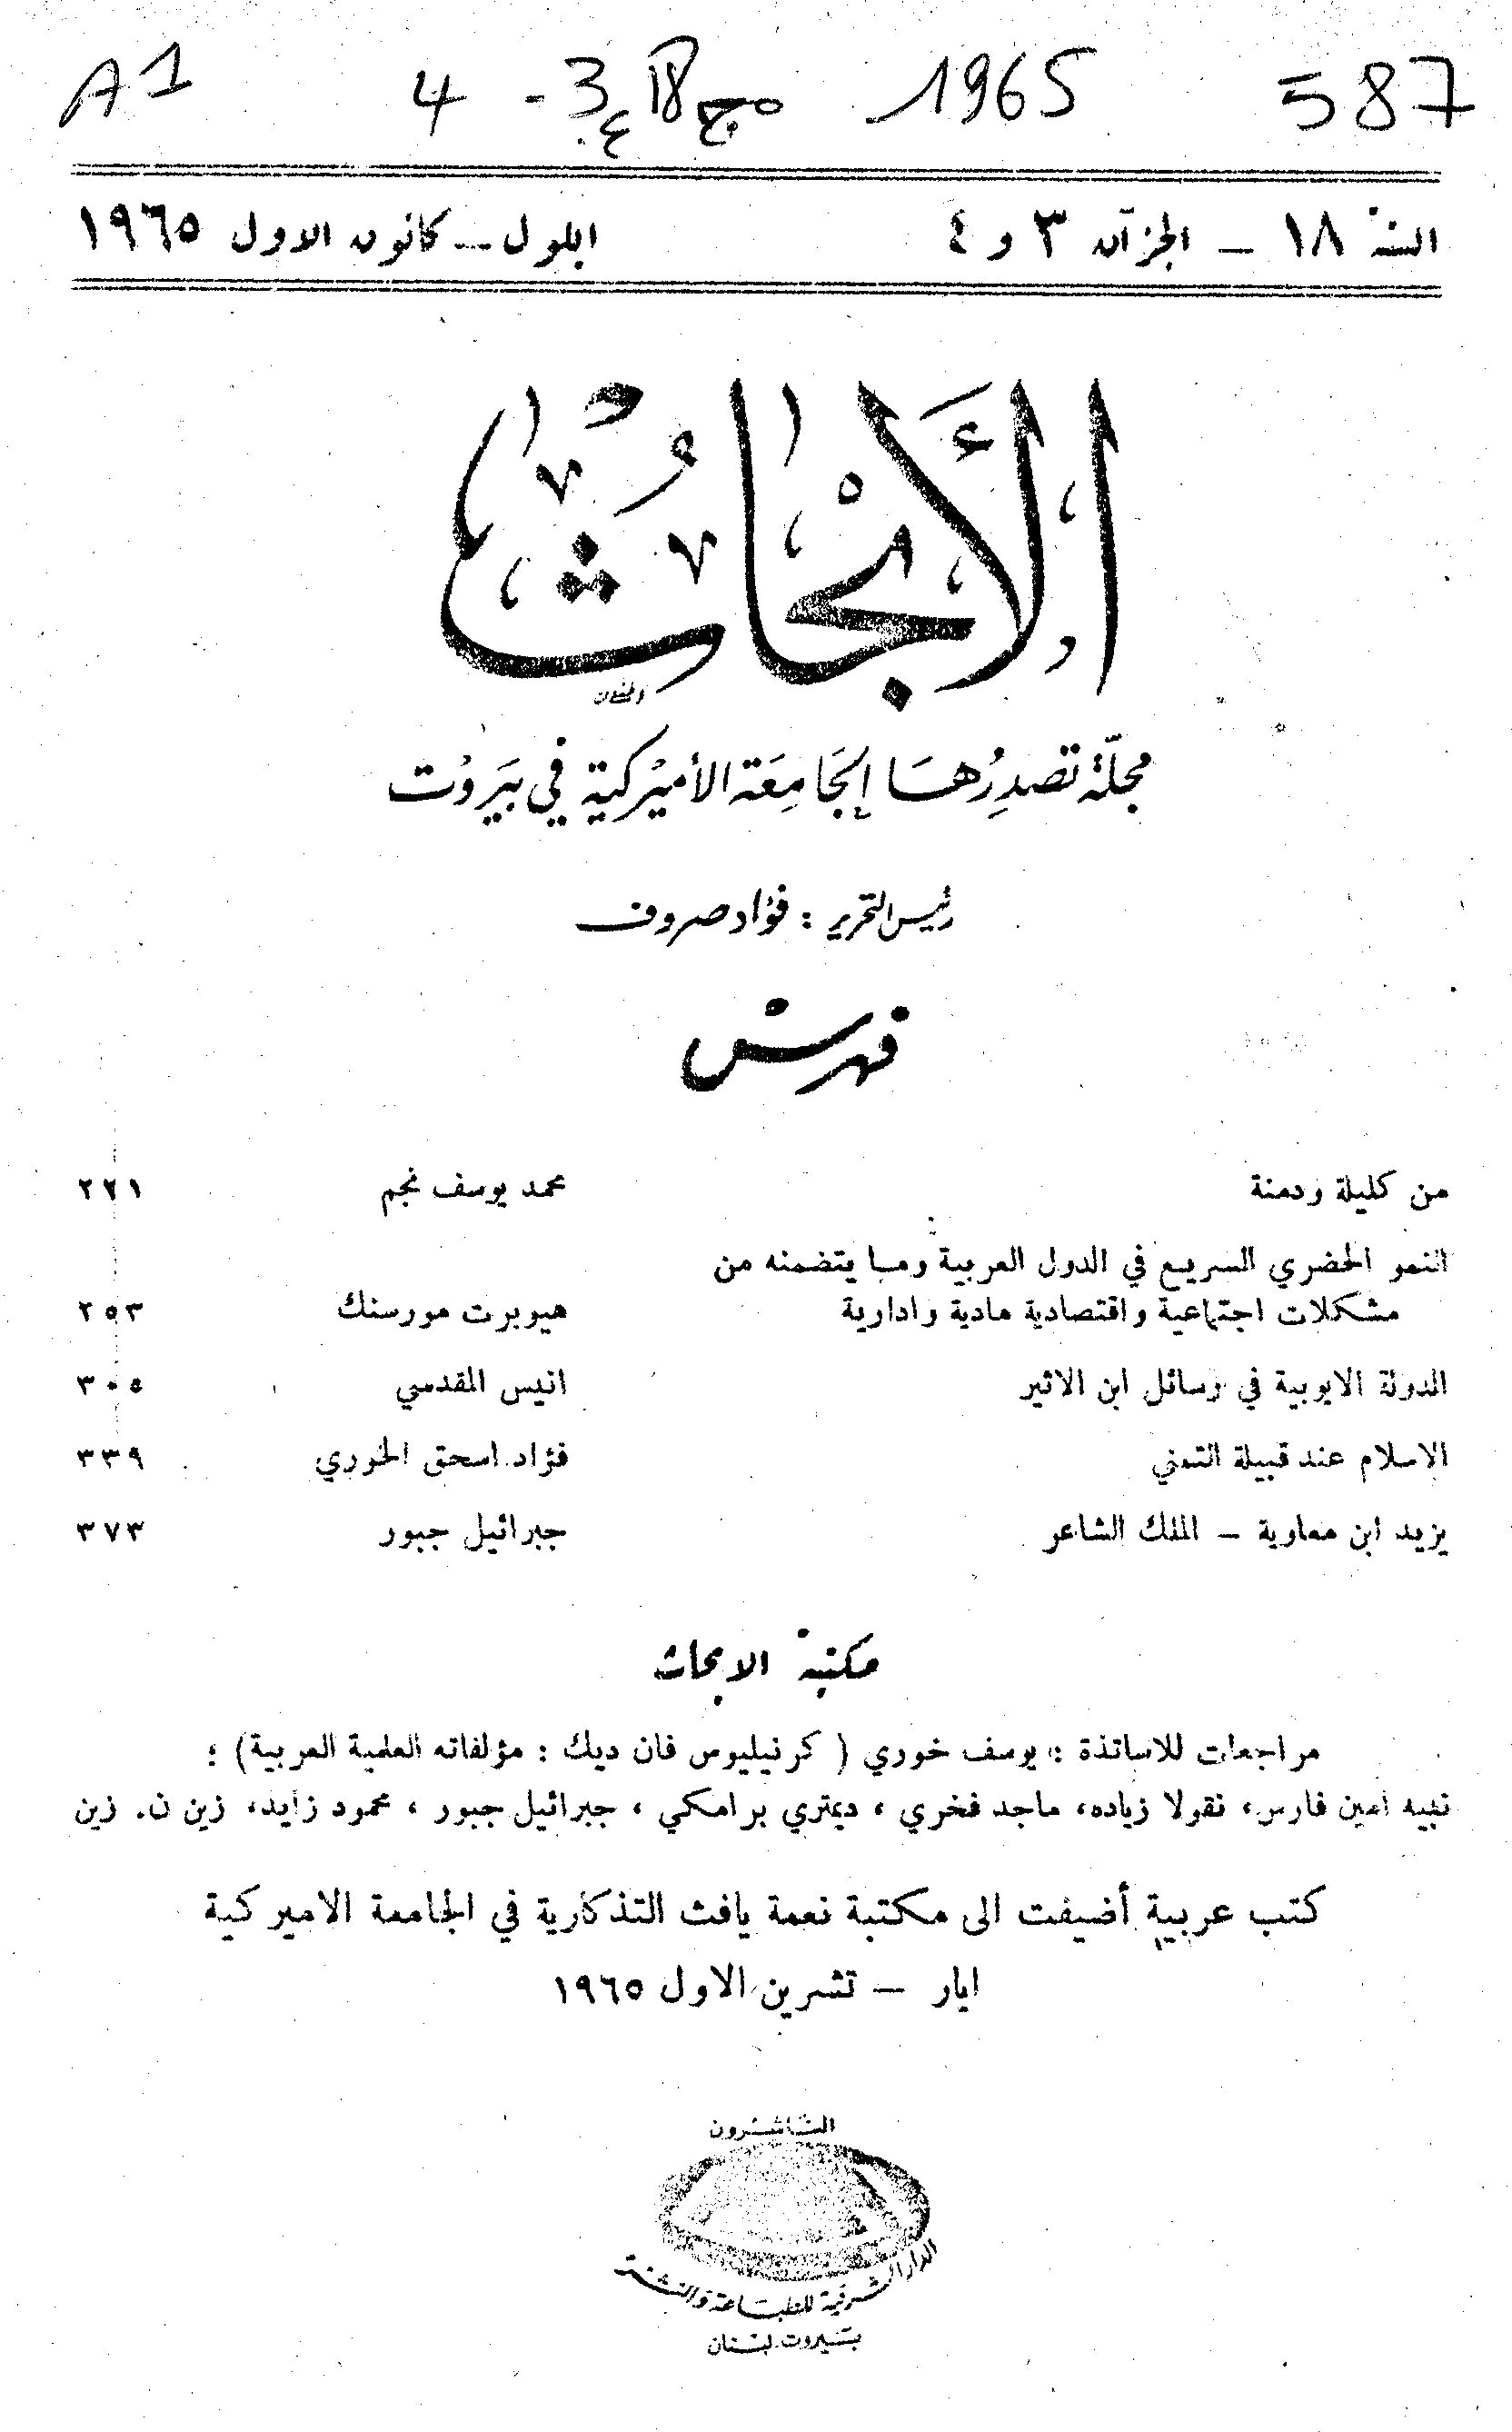 587 1965 مج 18 ع 3 - 4 A1
السنة ١٨ – الجزآن ٣ و ٤ ايلول – كانون الاول ١٩٦٥
الأَبْحَاثُ
مجلّة تصدرُها الجَامِعَة الأميركية في بَيروُت
رئيس التحرير : فؤاد صروف
فهرست
من كليلة ودمنة محمد يوسف نجم ٢٢١
النمو الحضري السريع في الدول العربية وما يتضمنه من
مشكلات اجتماعية واقتصادية مادية وادارية هيوبرت مورسنك ٢٥٣
الدولة الايوبية في رسائل ابن الاثير انيس المقدسي ٣٠٥
الاسلام عند قبيلة التمني فؤاد اسحق الخوري ٣٣٩
يزيد ابن معاوية – الملك الشاعر جبرائيل جبور ٣٧٣
مكتبة الابحاث
مراجعات للاساتذة : يوسف خوري ( كرنيليوس فان ديك : مؤلفاته العلمية العربية) ؛
نبيه امين فارس، نقولا زياده، ماجد فخري ، ديمتري برامكي ، جبرائيل جبور ، محمود زايد، زين ن. زين
كتب عربية أضيفت الى مكتبة نعمة يافث التذكارية في الجامعة الاميركية
ايار – تشرين الاول ١٩٦٥
الناشرون
الدار الشرقية للطباعة والنشر
بيروت لبنان